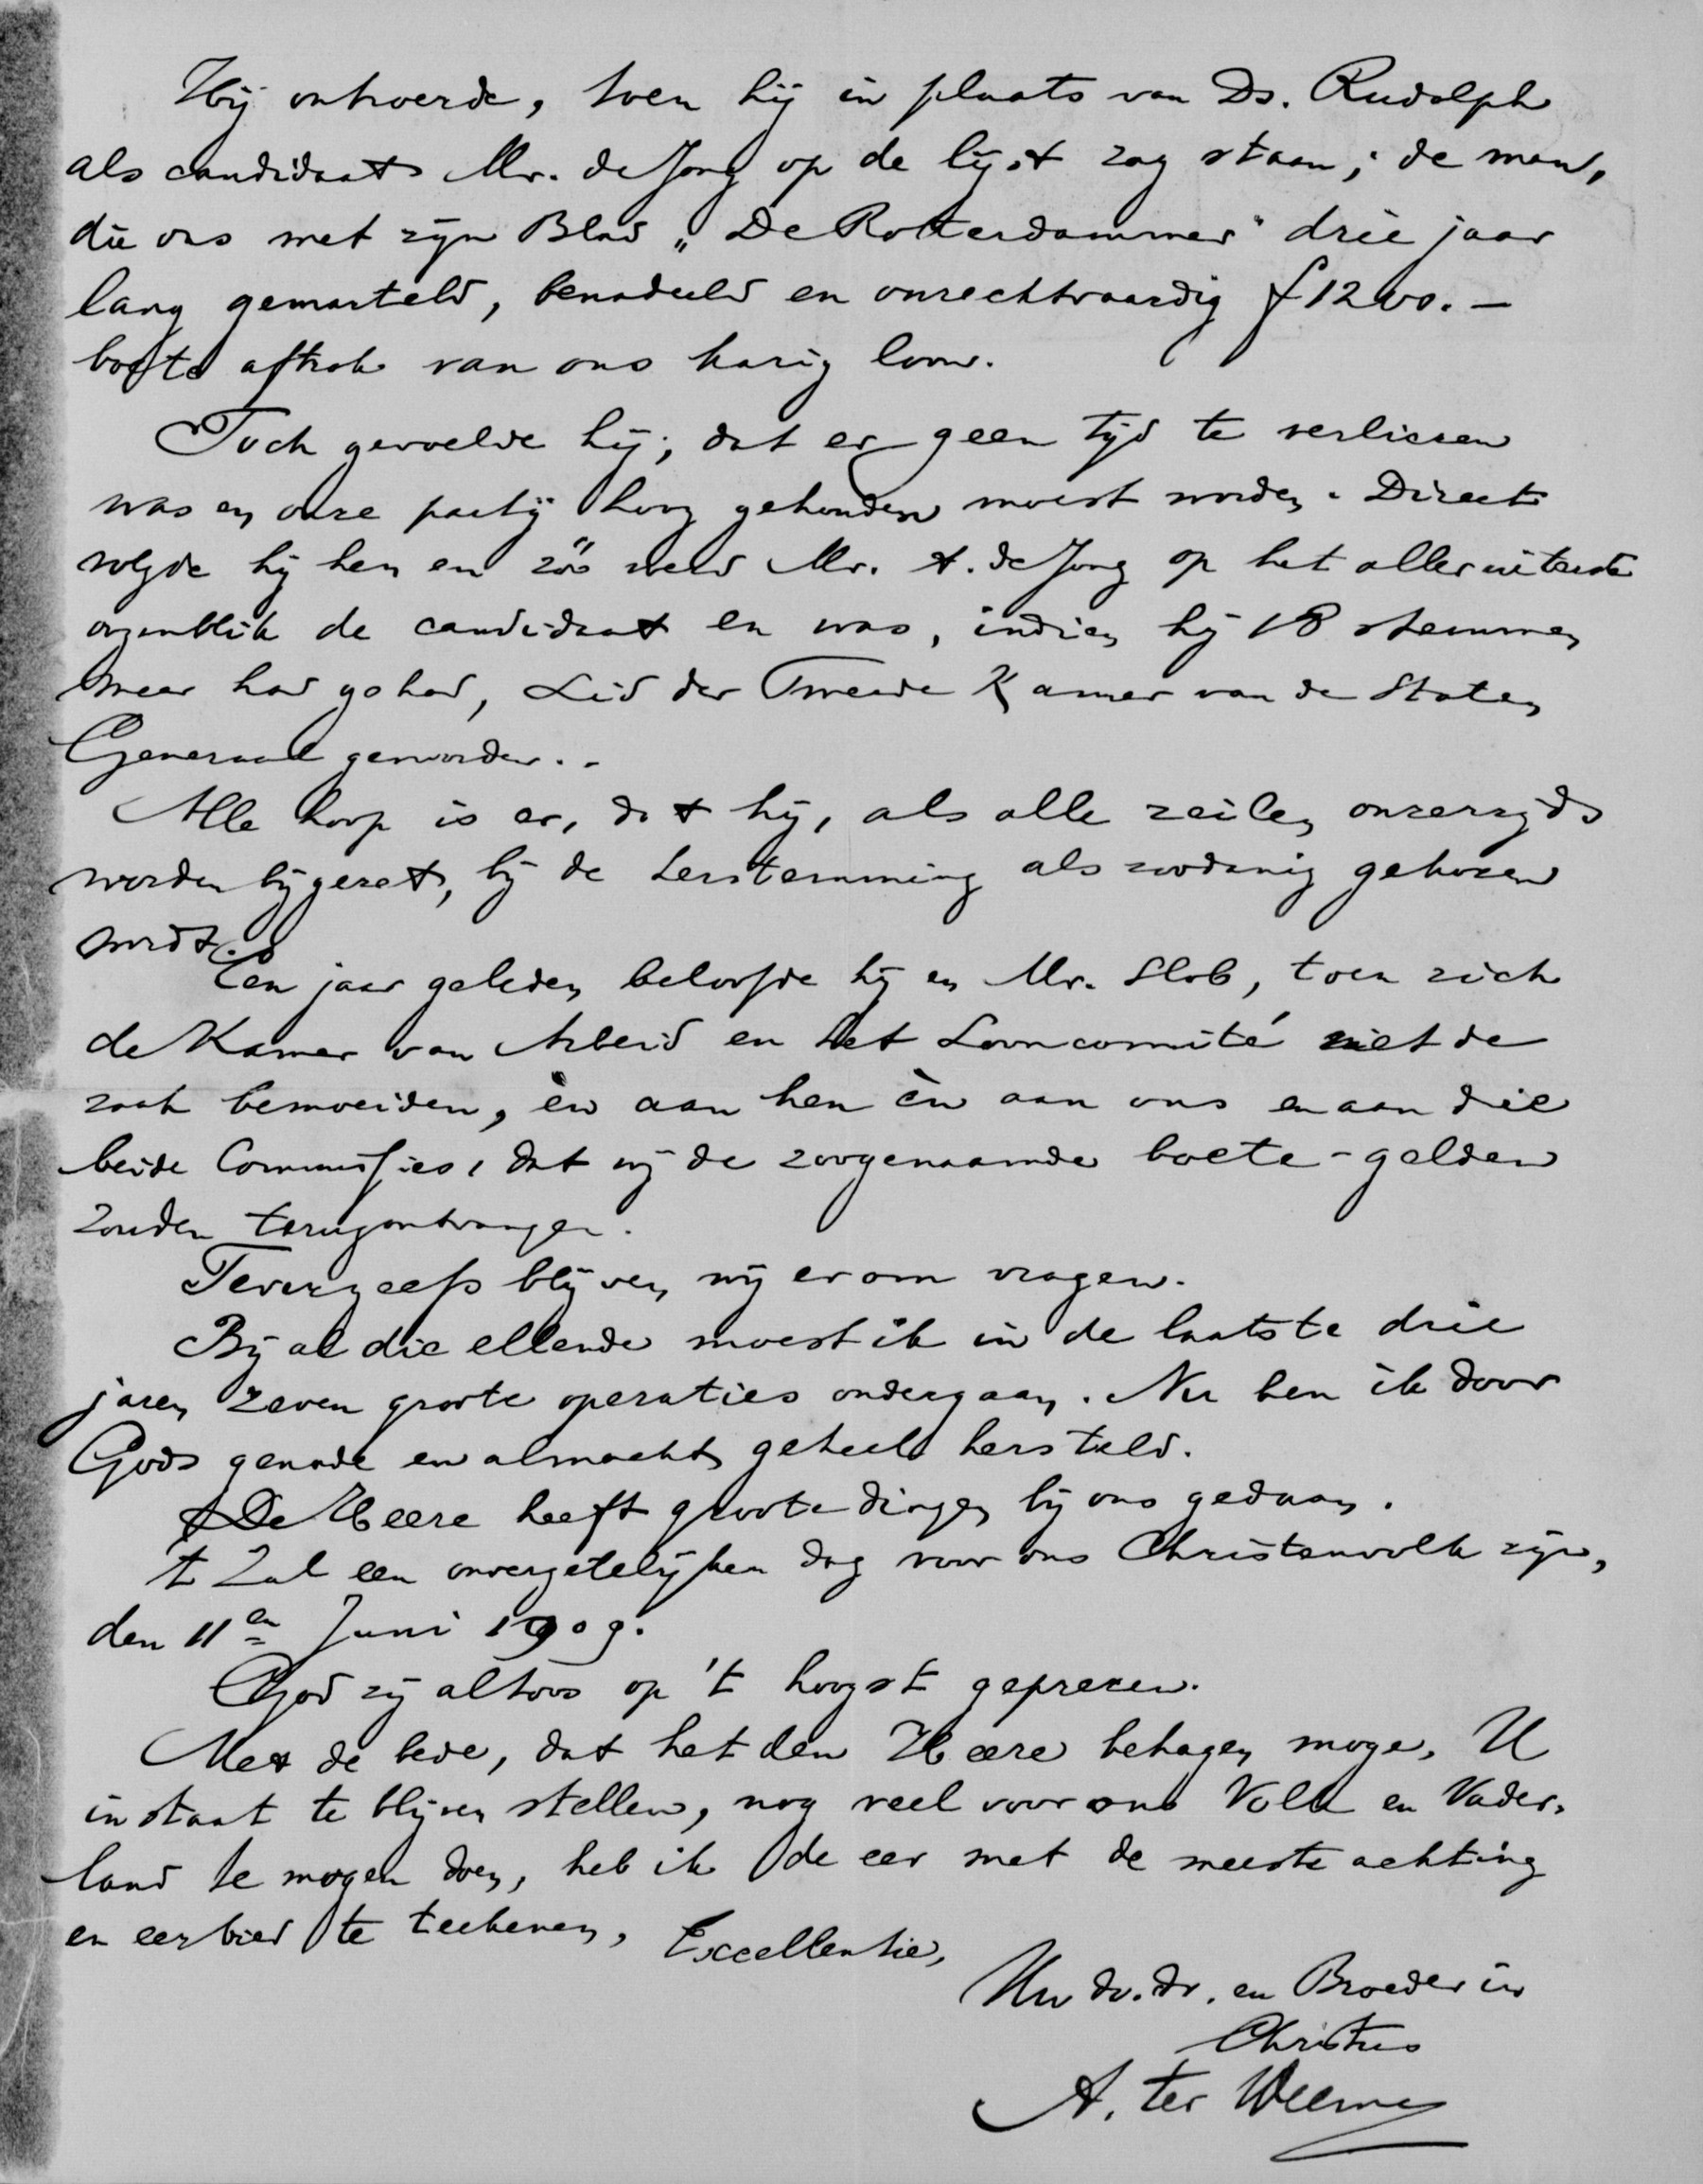 Hij ontroerde, toen hij in plaats van Ds. Rudolph
als candidaat Mr. de Jong op de lijst zag staan; de man,
die ons met zijn Blad „De Rotterdammer" drie jaar
lang gemarteld, benadeeld en onrechtvaardig f 1200.—
boete aftrok van ons karig loon.
Toch gevoelde hij; dat er geen tijd te verliezen
was en onze partij hoog gehouden moest worden. Direct
volgde hij hen en zóó werd Mr. A. de Jong op het alleruiterste
oogenblik de candidaat en was, indien hij 18 stemmen
meer had gehad, Lid der Tweede Kamer van de Staten
Generaal geworden..
Alle hoop is er, dat hij, als alle zeilen onzerzijds
worden bijgezet, bij de herstemming als zoodanig gekozen
wordt.
Een jaar geleden beloofde hij en Mr. Slob, toen zich
de Kamer van Arbeid en het Looncomité met de
zaak bemoeiden, èn aan hen èn aan ons en aan die
beide Commissies, dat wij de zoogenaamde boete-gelden
zouden terugontvangen.
Tevergeefs blijven wij erom vragen.
Bij al die ellende moest ik in de laatste drie
jaren zeven groote operaties ondergaan. Nu ben ik door
Gods genade en almacht geheel hersteld.
De Heere heeft groote dingen bij ons gedaan.
't Zal een onvergetelijken dag voor ons Christenvolk zijn,
den 11en Juni 1909.
God zij altoos op 't hoogst geprezen.
Met de bede, dat het den Heere behagen moge, U
in staat te blijven stellen, nog veel voor ons Volk en Vader-
land te mogen doen, heb ik de eer met de meeste achting
en eerbied te teekenen, Excellentie,
Uw dv. dr. en Broeder in
Christus
A. ter Weeme